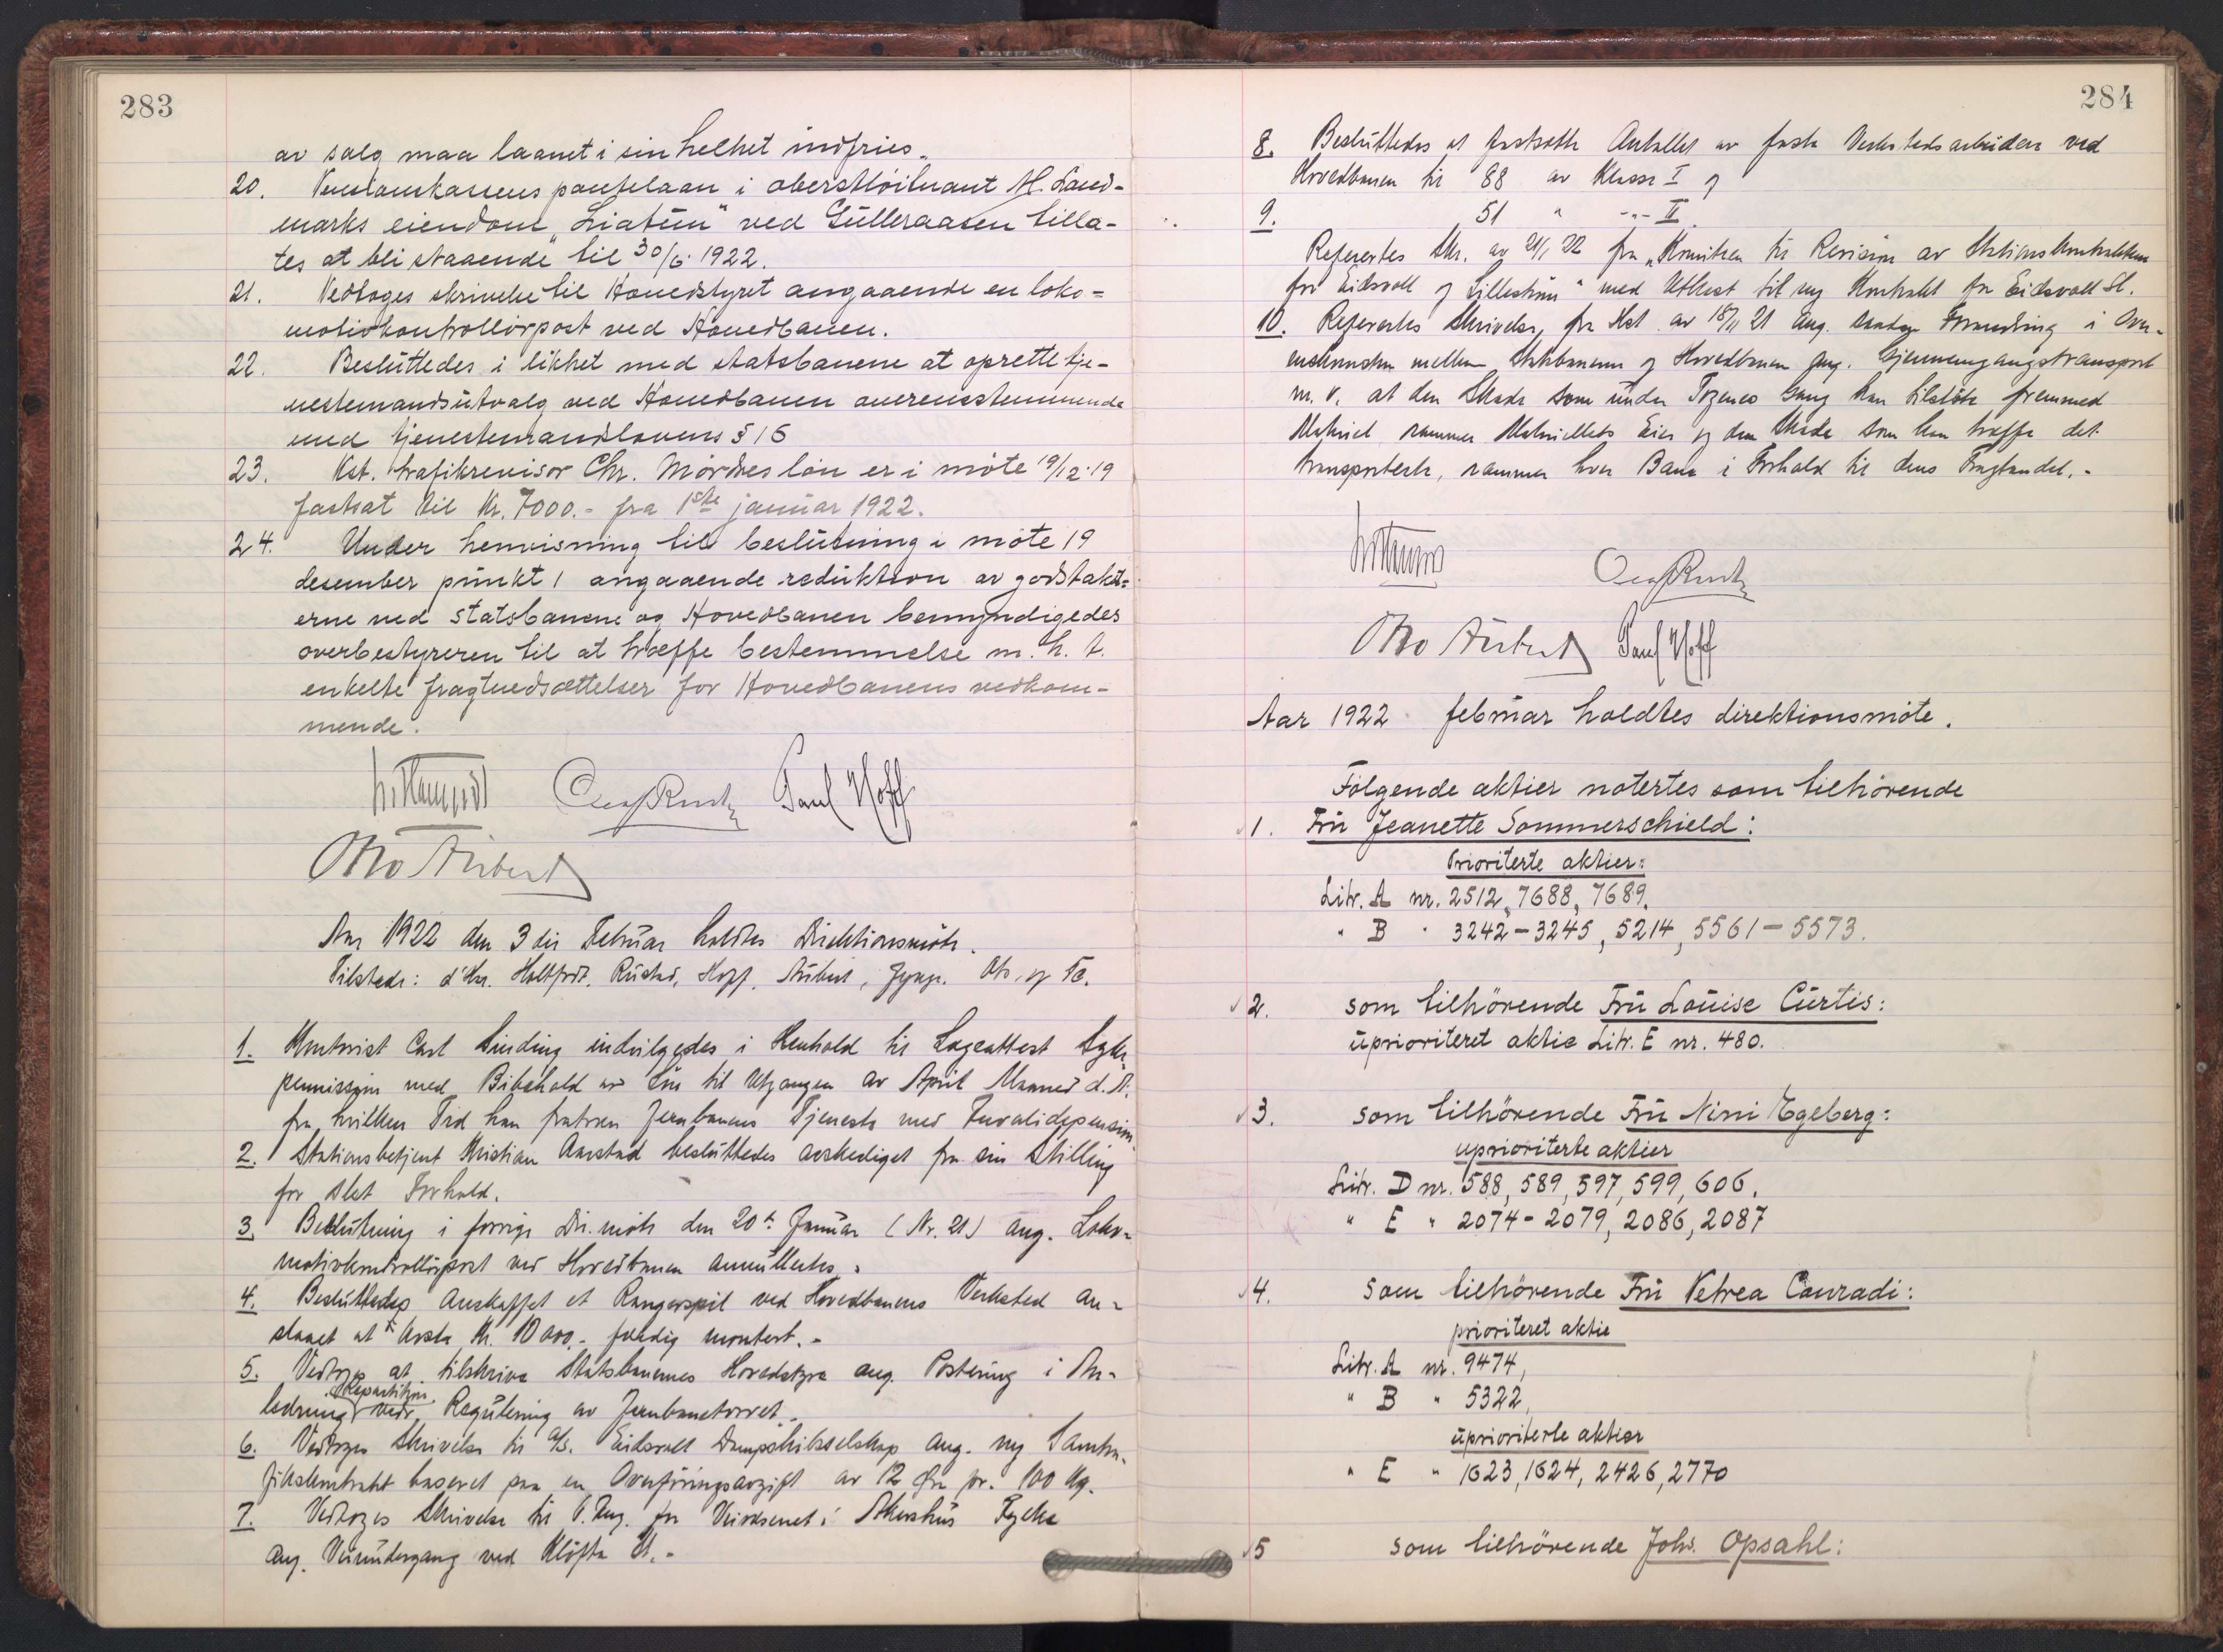 283
av salg maa laanet i sin helhet indfries.
20. Pensionskassens pantelaan i oberstløitnant M. Land-
marks eiendom „Liatun" ved Gulleraasen tilla-
tes at bli staaende til 30/6 1922.
21. Vedtoges skrivelse til Hovedstyret angaaende en loko=
motivkontrollørpost ved Hovedbanen.
22. Besluttedes i likhet med statsbanene at oprette tje-
nestemandsutvalg ved Hovedbanen overensstemmende
med tjenestemandslovens § 16
23. Kst. trafikrevisor Chr. Mørdres løn er i møte 19/12·19
fastsat til Kr. 7000.- fra 1ste januar 1922.
24. Under henvisning til beslutning i møte 19
desember punkt 1 angaaende reduktion av godstakst=
erne ved statsbanene og Hovedbanen bemyndigedes
overbestyreren til at træffe bestemmelse m. h. t.
enkelte fragtnedsættelser for Hovedbanens vedkom-
mende.
Paul Hoff
Otto Aubert
Aar 1922 den 3die Februar holdtes Direktionsmøte.
Tilstede: d'Hrr. Holtfodt, Rustad, Hoff, Aubert,
1. Kontorist Carl Sinding indvilgedes i Henhold til Lægeattest Syke-
permission med Bibehold av Løn til Utgangen av April Maaned d. A.
fra hvilken Tid han fratræer Jernbanens Tjeneste med Invalidepension.
2. Stationsbetjent Kristian Aarstad besluttedes avskediget fra sin Stilling
for slet Forhold.
3. Beslutning i forrige Dir. møte den 20de Januar (Nr. 21) ang. Loko-
motivkontrollørpost ved Hovedbanen annullertes.
4. Besluttedes anskaffet et Rangerspil ved Hovedbanens Verksted an-
slaaet at koste Kr. 10 000.- færdig montert.-
5. Vedtoges at tilskrive Statsbanernes Hovedstyre ang. Postering i An-
ledning Repartition vedr. Regulering av Jernbanetorvet.-
6. Vedtoges Skrivelse til A/S. Eidsvold Dampskibsselskap ang. ny Samtra-
fikkontrakt baseret paa en Overføringsavgift av 12 Øre pr. 100 Kg.
7. Vedtoges Skrivelse til O. Ing. for Veivæsenet i Akershus Fylke
ang. Veiundergang ved Kløfta St.-
284
8. Besluttedes at fastsætte Antallet av faste Verkstedsarbeidere ved
Hovedbanen til 88 av Klasse I og
9. 51 " -"- II.
Referertes Skr. av 21/1 22 fra „Komiteen til Revision av Stationskontrakterne
for Eidsvoll og Lillestrøm" med Utkast til ny Kontrakt for Eidsvoll St.
10. Referertes Skrivelse fra Hst. av 18/11 21 ang. saadan Forandring i Over-
enskomsten mellem Statsbanerne og Hovedbanen ang. Gjennemgangstransport
m. v. at den Skade som under Togenes Gang kan tilstøte fremmed
Materiel rammer Materiellets Eier og den Skade som kan træffe det
transporterte, rammer hver Bane i Forhold til dens Fragtandel.-
Otto Aubert Paul Hoff
Aar 1922 februar holdtes direktionsmøte.
Følgende aktier notertes som tilhørende
1. Fru Jeanette Sommerschield:
Prioriterte aktier:
Litr. A nr. 2512, 7688, 7689.
" B " 3242-3245, 5214, 5561-5573.
2. som tilhørende Fru Louise Curtis:
uprioriteret aktie Litr. E nr. 480.
3. som tilhørende Fru Nini Egeberg:
uprioriterte aktier
Litr. D nr. 588, 589, 597, 599, 606.
" E " 2074-2079, 2086, 2087
4. som tilhørende Fru Petrea Conradi:
prioriteret aktie
Litr. A nr. 9474,
" B " 5322,
uprioriterte aktier
" E " 1623, 1624, 2426, 2770
5 som tilhørende Johs. Opsahl: